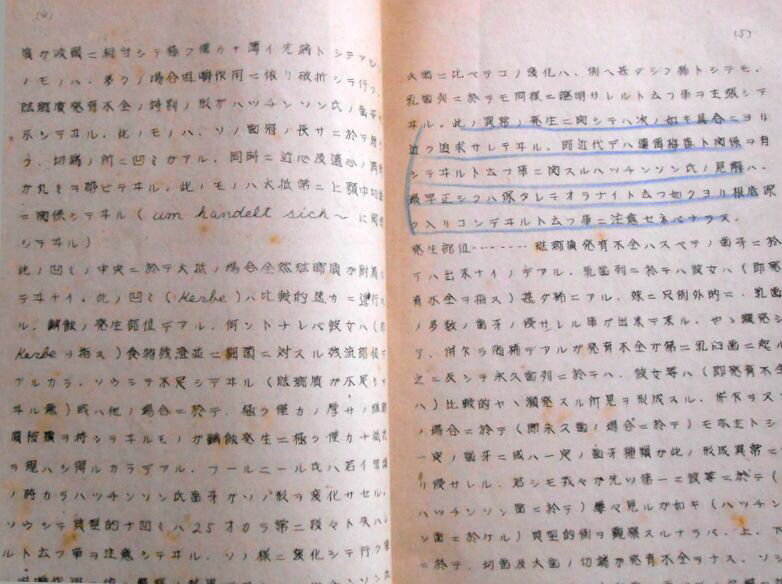 (4)
質ガ波圏ニ相当シテ極ク僅カナ薄イ光沢トシテアル
ノモノハ、多クノ場合咀嚼作用ニ依リ破折シテ行ク
琺瑯質発育不全ノ特別ノ形ガハッチンソン氏ノ歯
示シテヰル。此ノモノハ、ソノ歯冠ノ長サニ於テ
ウ、切端ノ所ニ凹ミガアル。同時ニ近心及遠心ノ両
ガ丸ミヲ帯ビテヰル。此ノモノハ大抵第二上顎中切
ニ関係シテヰル(um handelt sich～ニ関
シテヰル)
此ノ凹ミノ中央ニ於テ大抵ノ場合全然琺瑯質ガ附着シ
テヰナイ。此ノ凹ミ(Kerbe)ハ比較的速カニ進行ス
ル、齲蝕ノ発生部位デアル。何ントナレバ彼女ハ(即
Kerbeヲ指ス)食物残渣並ニ細菌ニ対スル残流
アルカラ。ソウシテ不足シテヰル(琺瑯質ガ不足シ
ヰル意)或ハ他ノ場合ニ於テ、極ク僅カノ厚サノ
質被膜ヲ持シテヰルモノガ齲蝕発生ニ極ク僅カナ抵抗
ヲ現ハシ得ルカラデアル。フールニール氏ハ若イ
ノ時カラハッチンソン氏歯牙ガソノ形ヲ変化サセル。
ソウシテ典型的ナ凹ミハ25才カラ第二段々ト失ハ
ルト云フ事ヲ注意シテヰル。ソノ様ニ変化シテ行ク
(5)
久歯ニ比ベテコノ変化ハ、例ヘ甚ダシク稀トシテモ、
乳歯列ニ於テモ同様ニ証明サレルト云フ事ヲ主張シテ
ヰル。此ノ異常ノ発生ニ関シテハ次ノ如キ具合ニヨリ
近ク追求サレテヰル。即近代デハ遺伝梅毒ト関係ヲ有
シテヰルト云フ事ニ関スルハッチンソン氏ノ見解ハ、
最早正シクハ保タレテオラナイト云フ如クヨリ根底深
ク入リコンデヰルト云フ事ニ注意セネバナラス。
発生部位‥‥‥‥琺瑯質発育不全ハスベテノ歯牙ニ於
テハ出来ナイノデアル。乳歯列ニ於テハ彼女ハ(即発
育不全ヲ指ス)甚ダ稀ニアル。殊ニ只例外的ニ、乳歯
ノ多数ノ歯牙ノ侵サレル事ガ出来テ来ル。ヤヽ頻発シ
テ、併乍ラ尚稀デアルガ発育不全ガ第二乳臼歯ニ起ル
之ニ反シテ永久歯列ニ於テハ、彼女等ハ(即発育不全
ハ)比較的ヤヽ頻発スル所見ヲ形成スル。併乍ラス
ノ場合ニ於テ(即永久歯ノ場合ニ於テ)モ亦主トシ
一定ノ歯牙ニ或ハ一定ノ歯牙種類ガ此ノ形成異常ニ
リ侵サレル。若シモ我々ガ先ヅ第一ニ彼等ニ於テ(
ハッチンソン歯ニ於テ)屡々見ルガ如キ(ハッチン
ン歯ニ於ケル)典型的例ヲ観察スルナラバ、上、下
ニ於テ、切歯及犬歯ノ切端ガ発育不全ヲナス。ソシ